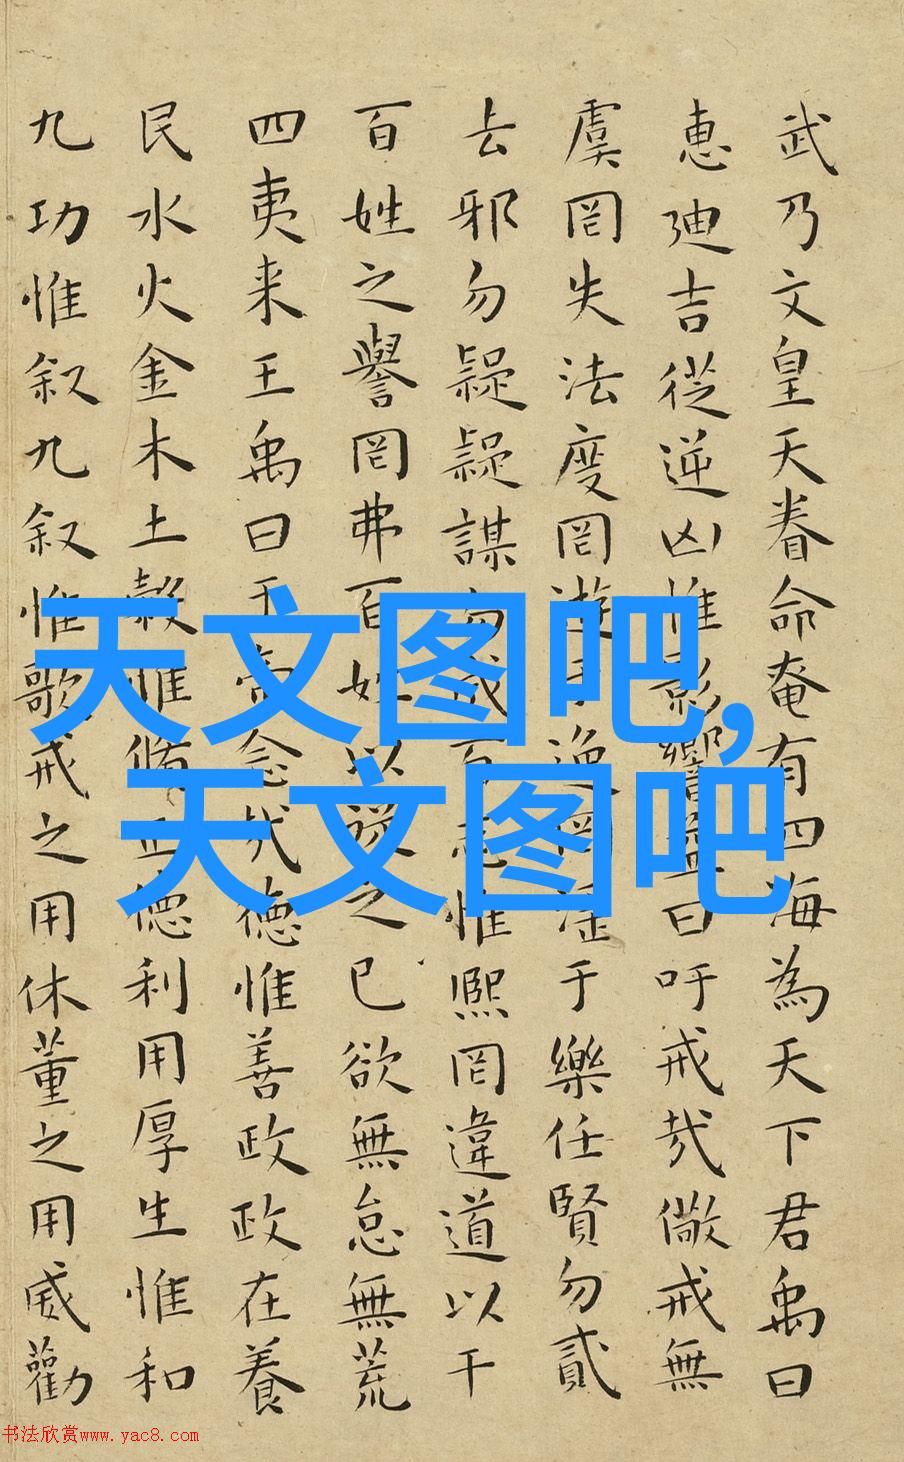 武乃文皇天眷命奄有四海為天下君禹曰
惠迪吉從逆凶惟影響益曰吁戒哉儆戒無
虞罔失法度罔遊于逸罔淫于樂任賢勿貳
去邪勿疑疑謀勿成百志惟熙罔違道以干
百姓之譽罔弗百姓以從之已欲無怠無荒
四夷来王禹曰于帝念哉德惟善政政在養
民水火金木土穀惟脩正德利用厚生惟和
九功惟叙九叙惟歌戒之用休董之用威勸
天文图吧,
天文图吧
书法欣赏www.yac8.com